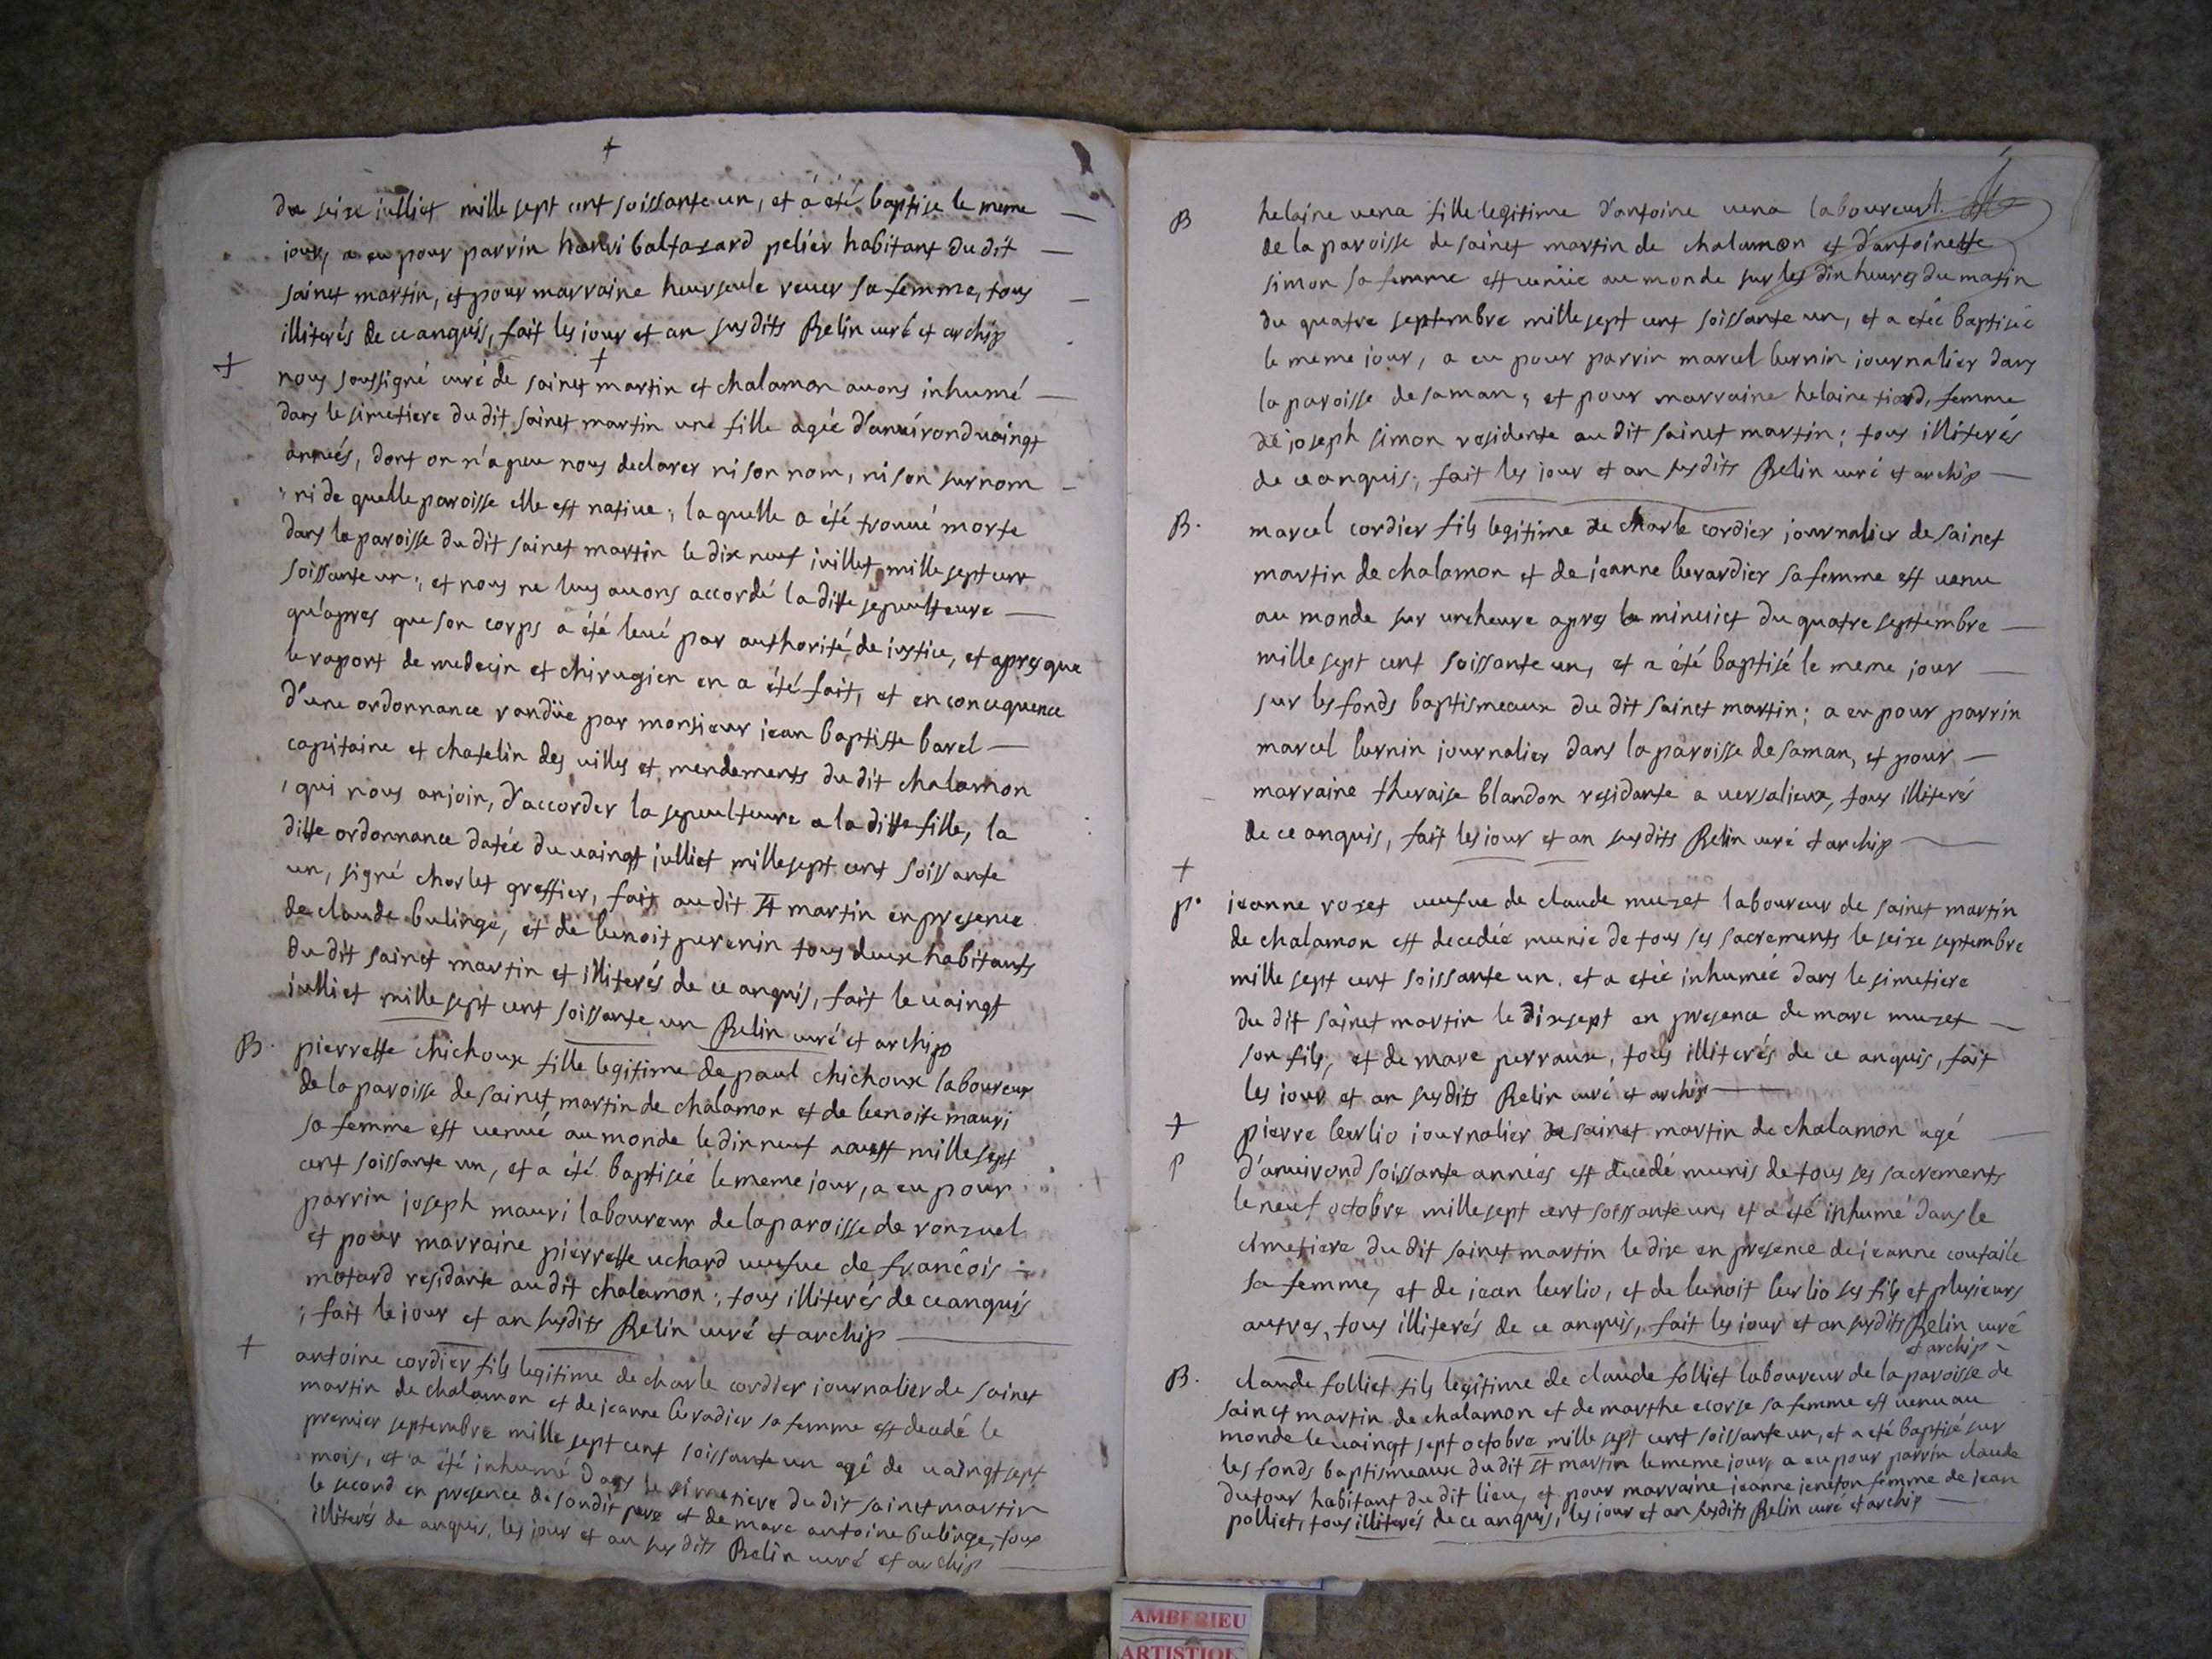 +
du seize julliet mille sept cent soissante un, et á été baptise le meme —
jour, a eu pour parrin hanri baltazard pelier habitant du dit —
sainct martin, et pour marraine heurseule reuer sa femme, tous —
illiterés de ce anquis, fait les jour et an susdits Relin curé et archip
+ +
nous soussigné curé de sainct martin et chalamon auons inhumé —
dans le simetiere du dit sainct martin une fille agée d'anuirond uaingt
années, dont on n'a peu nous declarer ni son nom, ni son surnom —
ni de quelle paroisse elle est natiue, la quelle a été trouué morte
dans la paroisse du dit sainct martin le dix neuf juillet mille sept cent
soissante un, et nous ne luy auons accordé la ditte sepulteure —
qu'apres que son corps a été leué par authorité de justice, et apres que
le raport de medecin et chirugien en a été fait, et en concequence
d'une ordonnance randüe par monsieur jean baptiste barel —
capitaine et chatelin des uilles et mendements du dit chalamon
qui nous anjoin, d'accorder la sepulteure a la ditte fille, la
ditte ordonnance datée du uaingt julliet mille sept cent soissante
un, signé charlet greffier, fait au dit St martin en presence
de claude bulinge, et de benoit perenin tous deux habitants
du dit sainct martin et illiterés de ce anquis, fait le uaingt
julliet mille sept cent soissante un Relin curé et archip
B. pierrette chichoux fille legitime de paul chichoux laboureur
de la paroisse de sainct martin de chalamon et de benoite mauri
sa femme est uenue au monde le dix neuf aoust mille sept
cent soissante un, et a été baptisée le meme jour, a eu pour
parrin joseph mauri laboureur de la paroisse de ronzuel
et pour marraine pierrette uchard ueufue de francois —
motard residante au dit chalamon, tous illiterés de ce anquis
, fait le jour et an susdits Relin curé et archip —
+ antoine cordier fils legitime de charle cordier journalier de sainct
martin de chalamon et de jeanne beradier sa femme est decedé le
premier septembre mille sept cent soissante un agé de uaingt sept
mois, et a été inhumé dans le simetiere du dit sainct martin
le second en presence de son dit pere et de marc antoine bulinge, tous
illiterés de anquis, les jour et an susdits Relin curé et archip —
B helaine uena fille legitime d'antoine uena laboureur
de la paroisse de sainct martin de chalamon et d'antoinette
simon sa femme est uenüe au monde sur les dix heures du matin
du quatre septembre mille sept cent soissante un, et a etée baptisée
le meme jour, a eu pour parrin marcel bernin journalier dans
la paroisse de saman, et pour marraine helaine tiard, femme
de joseph simon residente au dit sainct martin; tous illiterés
de ce anquis, fait les jour et an susdits Relin curé et archip —
B. marcel cordier fils legitime de charle cordier journalier de sainct
martin de chalamon et de jeanne berardier sa femme est uenu
au monde sur une heure apres le minuict du quatre septembre —
mille sept cent soissante un, et a été baptisé le meme jour —
sur les fonds baptismeaux du dit sainct martin; a eu pour parrin
marcel bernin journalier dans la paroisse de saman, et pour —
marraine theraise blandon residante a uersalieux, tous illiterés
de ce anquis, fait les jour et an susdits Relin curé et archip —
+
p. jeanne rozet ueufue de claude muzet laboureur de sainct martin
de chalamon est decedée munie de tous ses sacrements le seize septembre
mille sept cent soissante un, et a etée inhumée dans le simetiere
du dit sainct martin le dixsept en presence de marc muzet —
son fils, et de marc perraux, tous illiterés de ce anquis, fait
les jour et an susdits Relin curé et archip —
+ pierre berlio journalier de sainct martin de chalamon agé —
P d'anuirond soissante années est decedé munis de tous ses sacrements
le neuf octobre mille sept cent soissante un, et a été inhumé dans le
cimetiere du dit sainct martin le dix en presence de jeanne coutaile
sa femme, et de jean berlio, et de benoit berlio ses fils et plusieurs
autres, tous illiterés de ce anquis, fait les jour et an susdits Relin curé
et archip —
B. claude folliet fils legitime de claude folliet laboureur de la paroisse de
sainct martin de chalamon et de marthe ecorse sa femme est uenu au
monde le uaingt sept octobre mille sept cent soissante un, et a été baptisé sur
les fonds baptismeaux du dit St martin le meme jour, a eu pour parrin claude
dutour habitant du dit lieu, et pour marraine jeanne jeneton femme de jean
polliet, tous illiterés de ce anquis, les jour et an susdits Relin curé et archip —
AMBERIEU
ARTISTIQUE